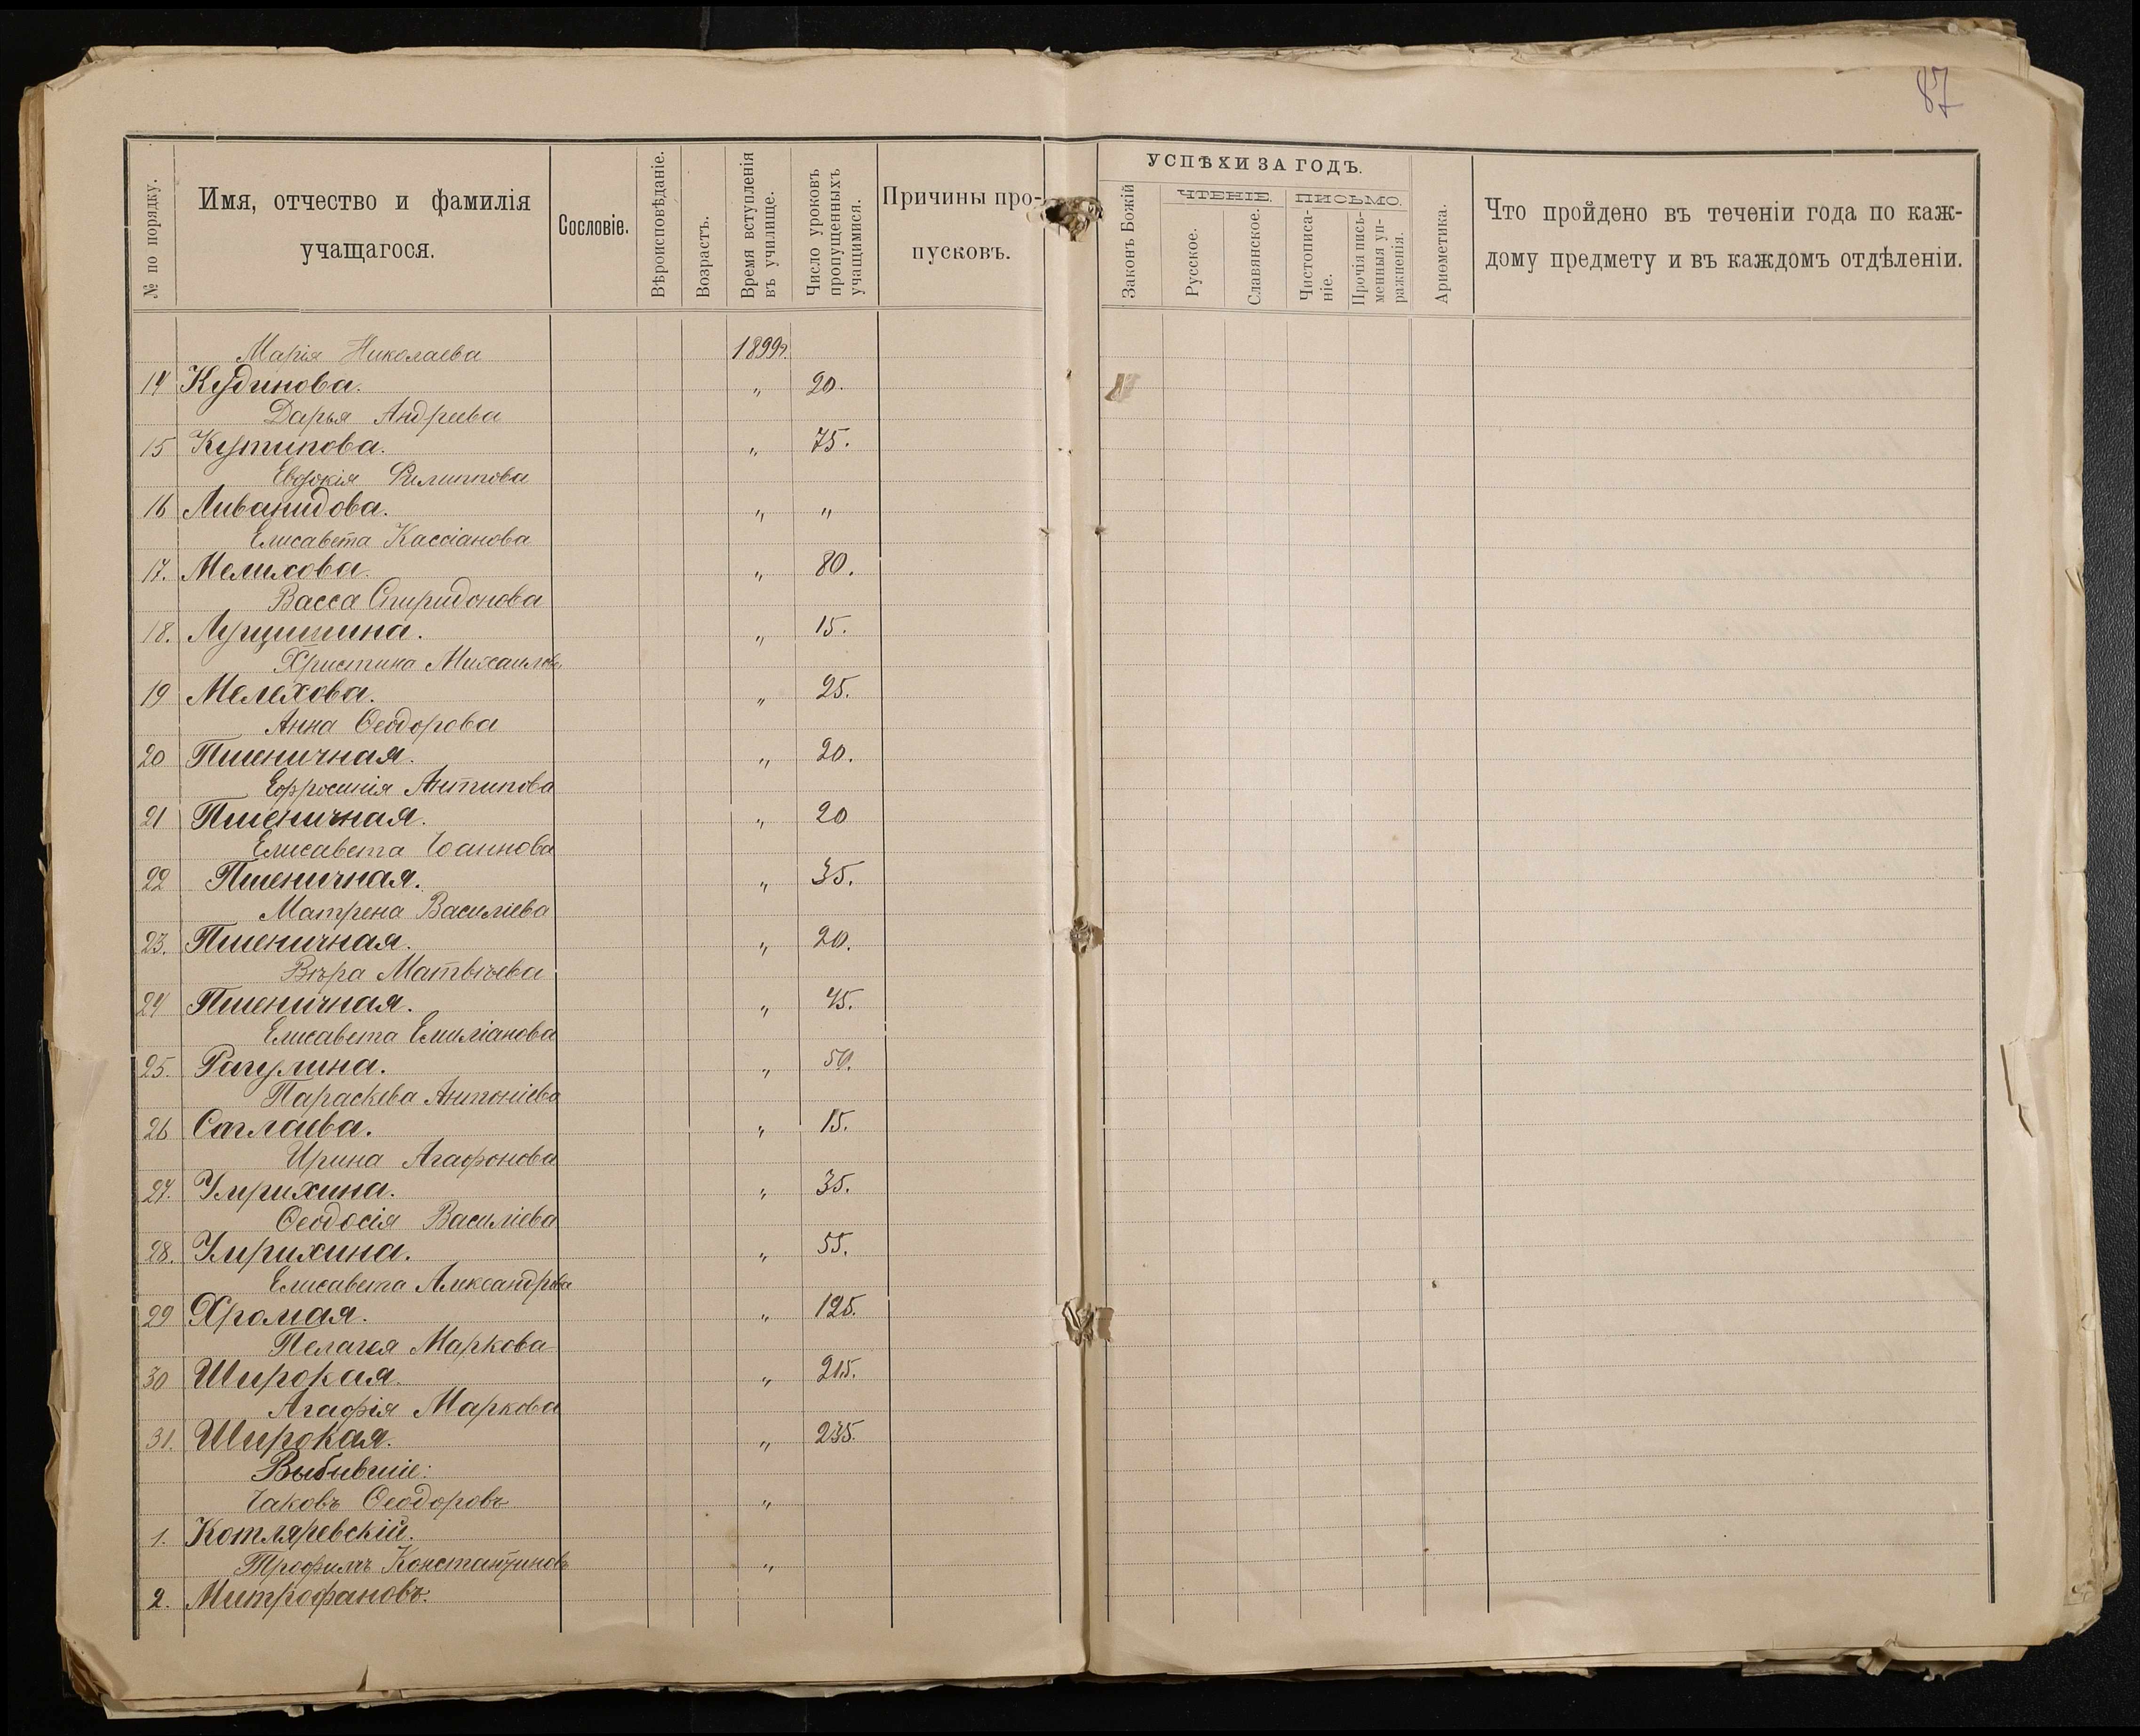 87
№ по порядку.
Имя, отчество и фамилія
учащагося.
Сословіе.
Вѣроисповѣданіе.
Возрастъ.
Время вступленія
въ училище.
Число уроковъ
пропущенныхъ
учащимися.
Причины про-
пусковъ.
УСПѢХИ ЗА ГОДЪ.
Законъ Божій
ЧТЕНІЕ.
Русское.
Славянское.
ПИСЬМО.
Чистописа-
ніе.
Прочія пись-
менныя уп-
ражненія.
Ариѳметика.
Что пройдено въ теченіи года по каж-
дому предмету и въ каждомъ отдѣленіи.
Марія Николаева 1899г.
14 Кудинова. „ 20.
Дарья Андреева
15 Кутипова. „ 75.
Евдокія Филиппова
16 Ливанидова. „ „
Елисавета Кассіанова
17. Мелихова. „ 80.
Васса Спиридонова
18. Лущишина. „ 15.
Христина Михаилова
19 Мелехова. „ 25.
Анна Ѳеодорова
20 Пшеничная. „ 20.
Ефросинія Антипова
21 Пшеничная. „ 20
Елисавета Іоаннова
22 Пшеничная. „ 35.
Матрена Василіева
23. Пшеничная. „ 20.
Вѣра Матвѣева
24 Пшеничная. „ 45.
Елисавета Емиліанова
25. Рагулина. „ 50.
Параскева Антоніева
26 Саглаева. „ 15.
Ирина Агафонова
27. Умрихина. „ 35.
Ѳеодосія Василіева
28. Умрихина. „ 55.
Елисавета Александрова
29 Хромая. „ 125.
Пелагея Маркова
30 Широкая. „ 215.
Агафія Маркова
31. Широкая. „ 235.
Выбывшіе:
Іаковъ Ѳеодоровъ „
1. Котляревскій.
Трофимъ Константиновъ „
2. Митрофановъ.